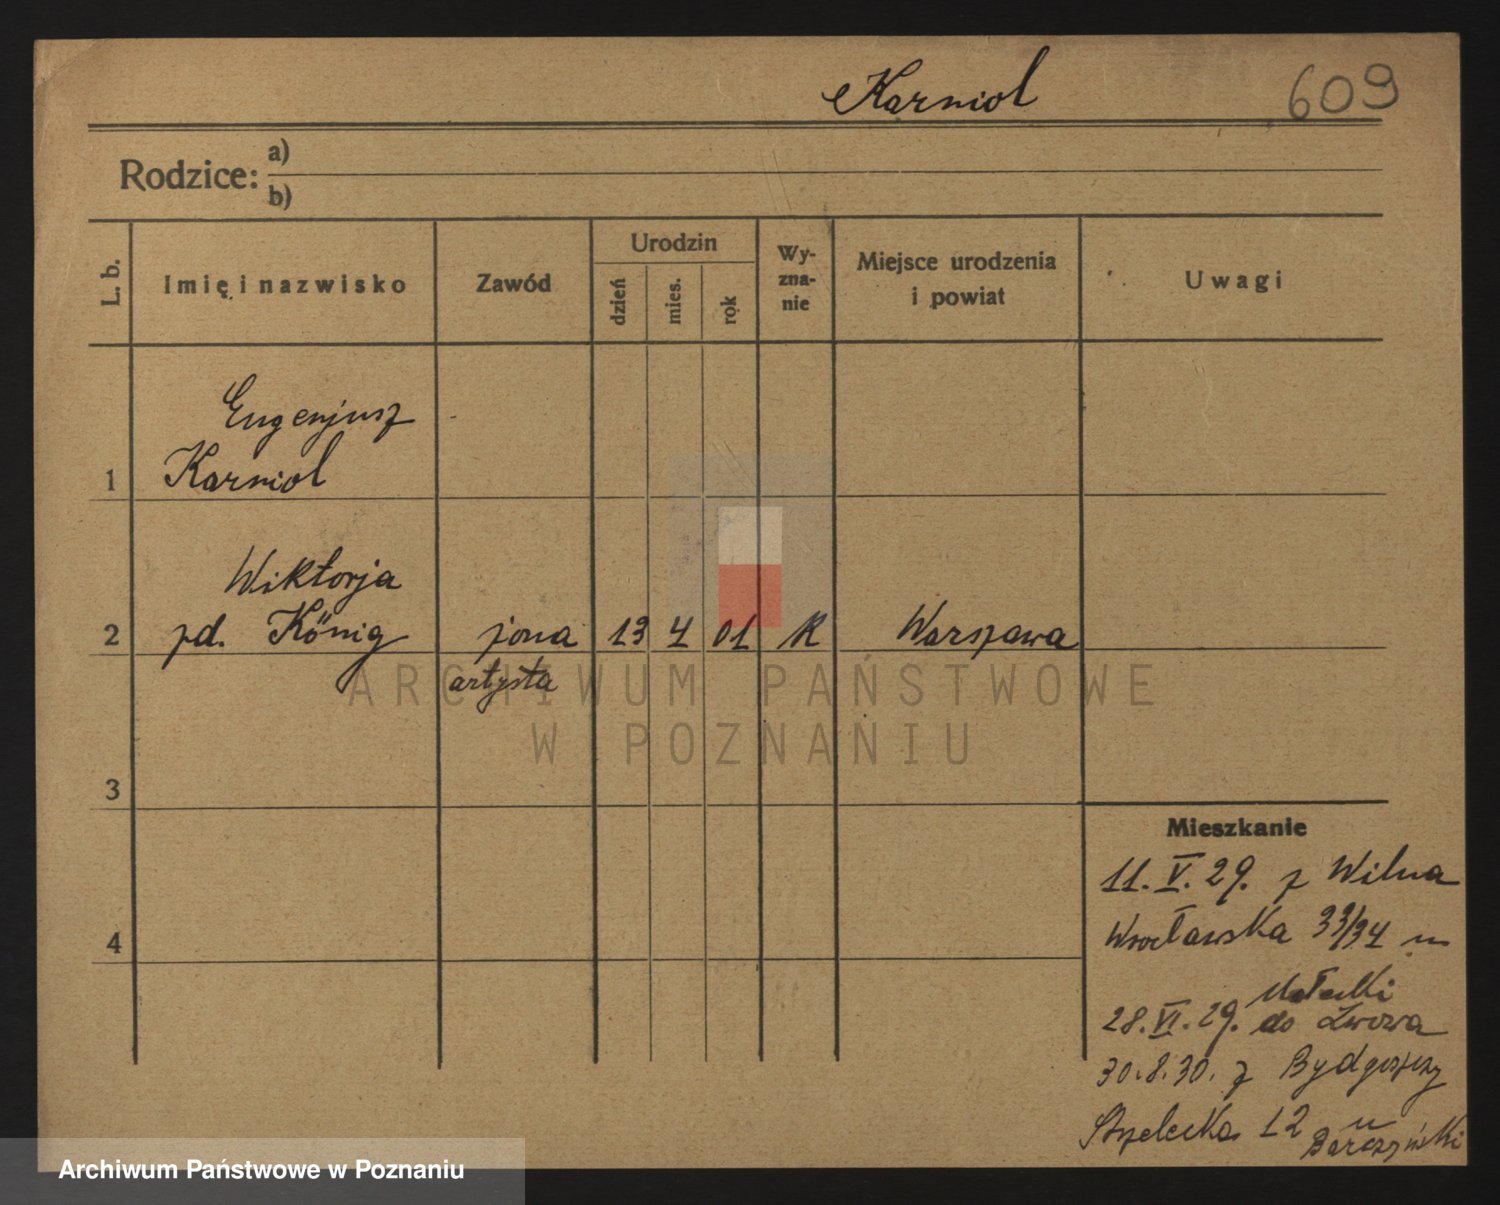 Karniol
609
Rodzice: a)
b)
L. b.
Imię i nazwisko
Zawód
Urodzin
dzień
mies.
rok
Wy-
zna-
nie
Miejsce urodzenia
i powiat
Uwagi
Eugenjusz
1 Karniol
Wiktorja
2 zd. König żona 13 4 01 R Warszawa
artysta
ARCHIWUM PAŃSTWOWE
W POZNANIU
3
Mieszkanie
11. V. 29. z Wilna
4
Wrocławska 33/34 u
Małecki
28. VI. 29. do Lwowa
30. 8. 30. z Bydgoszczy
Strzelecka 12 u
Barczyński
Archiwum Państwowe w Poznaniu